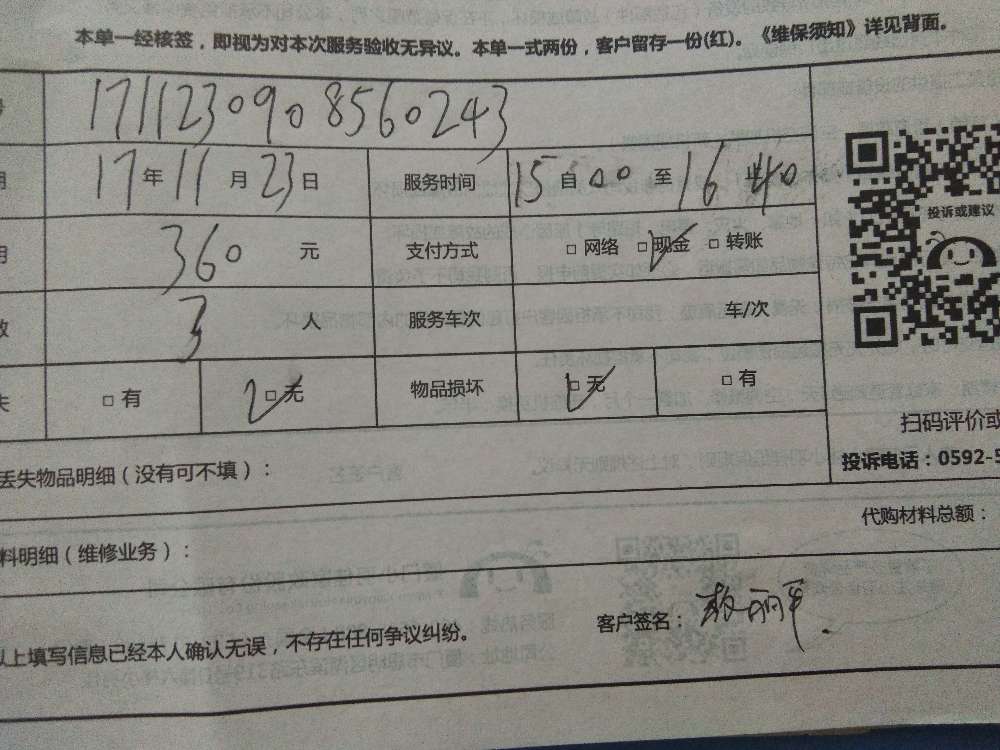 本单一经核签，即视为对本次服务验收无异议。本单一式两份，客户留存一份(红)。《维保须知》详见背面。
号 1711230908560243
期 17年11月23日 服务时间 15自00至16止40
用 360 元 支付方式 □网络 □现金 □转账
投诉或建议
数 3 人 服务车次 车/次
失 □有 □无 物品损坏 □无 □有
扫码评价或
丢失物品明细（没有可不填）：
投诉电话：0592-5
代购材料总额：
料明细（维修业务）：
以上填写信息已经本人确认无误，不存在任何争议纠纷。
客户签名：